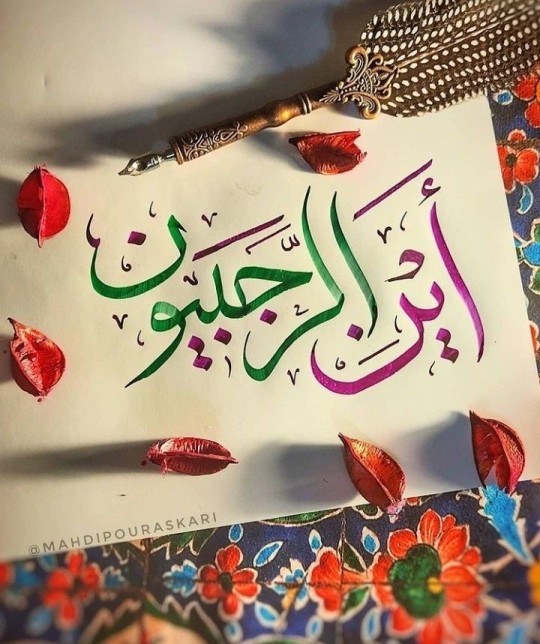 أين الرجبيون
@MAHDIPOURASKARI